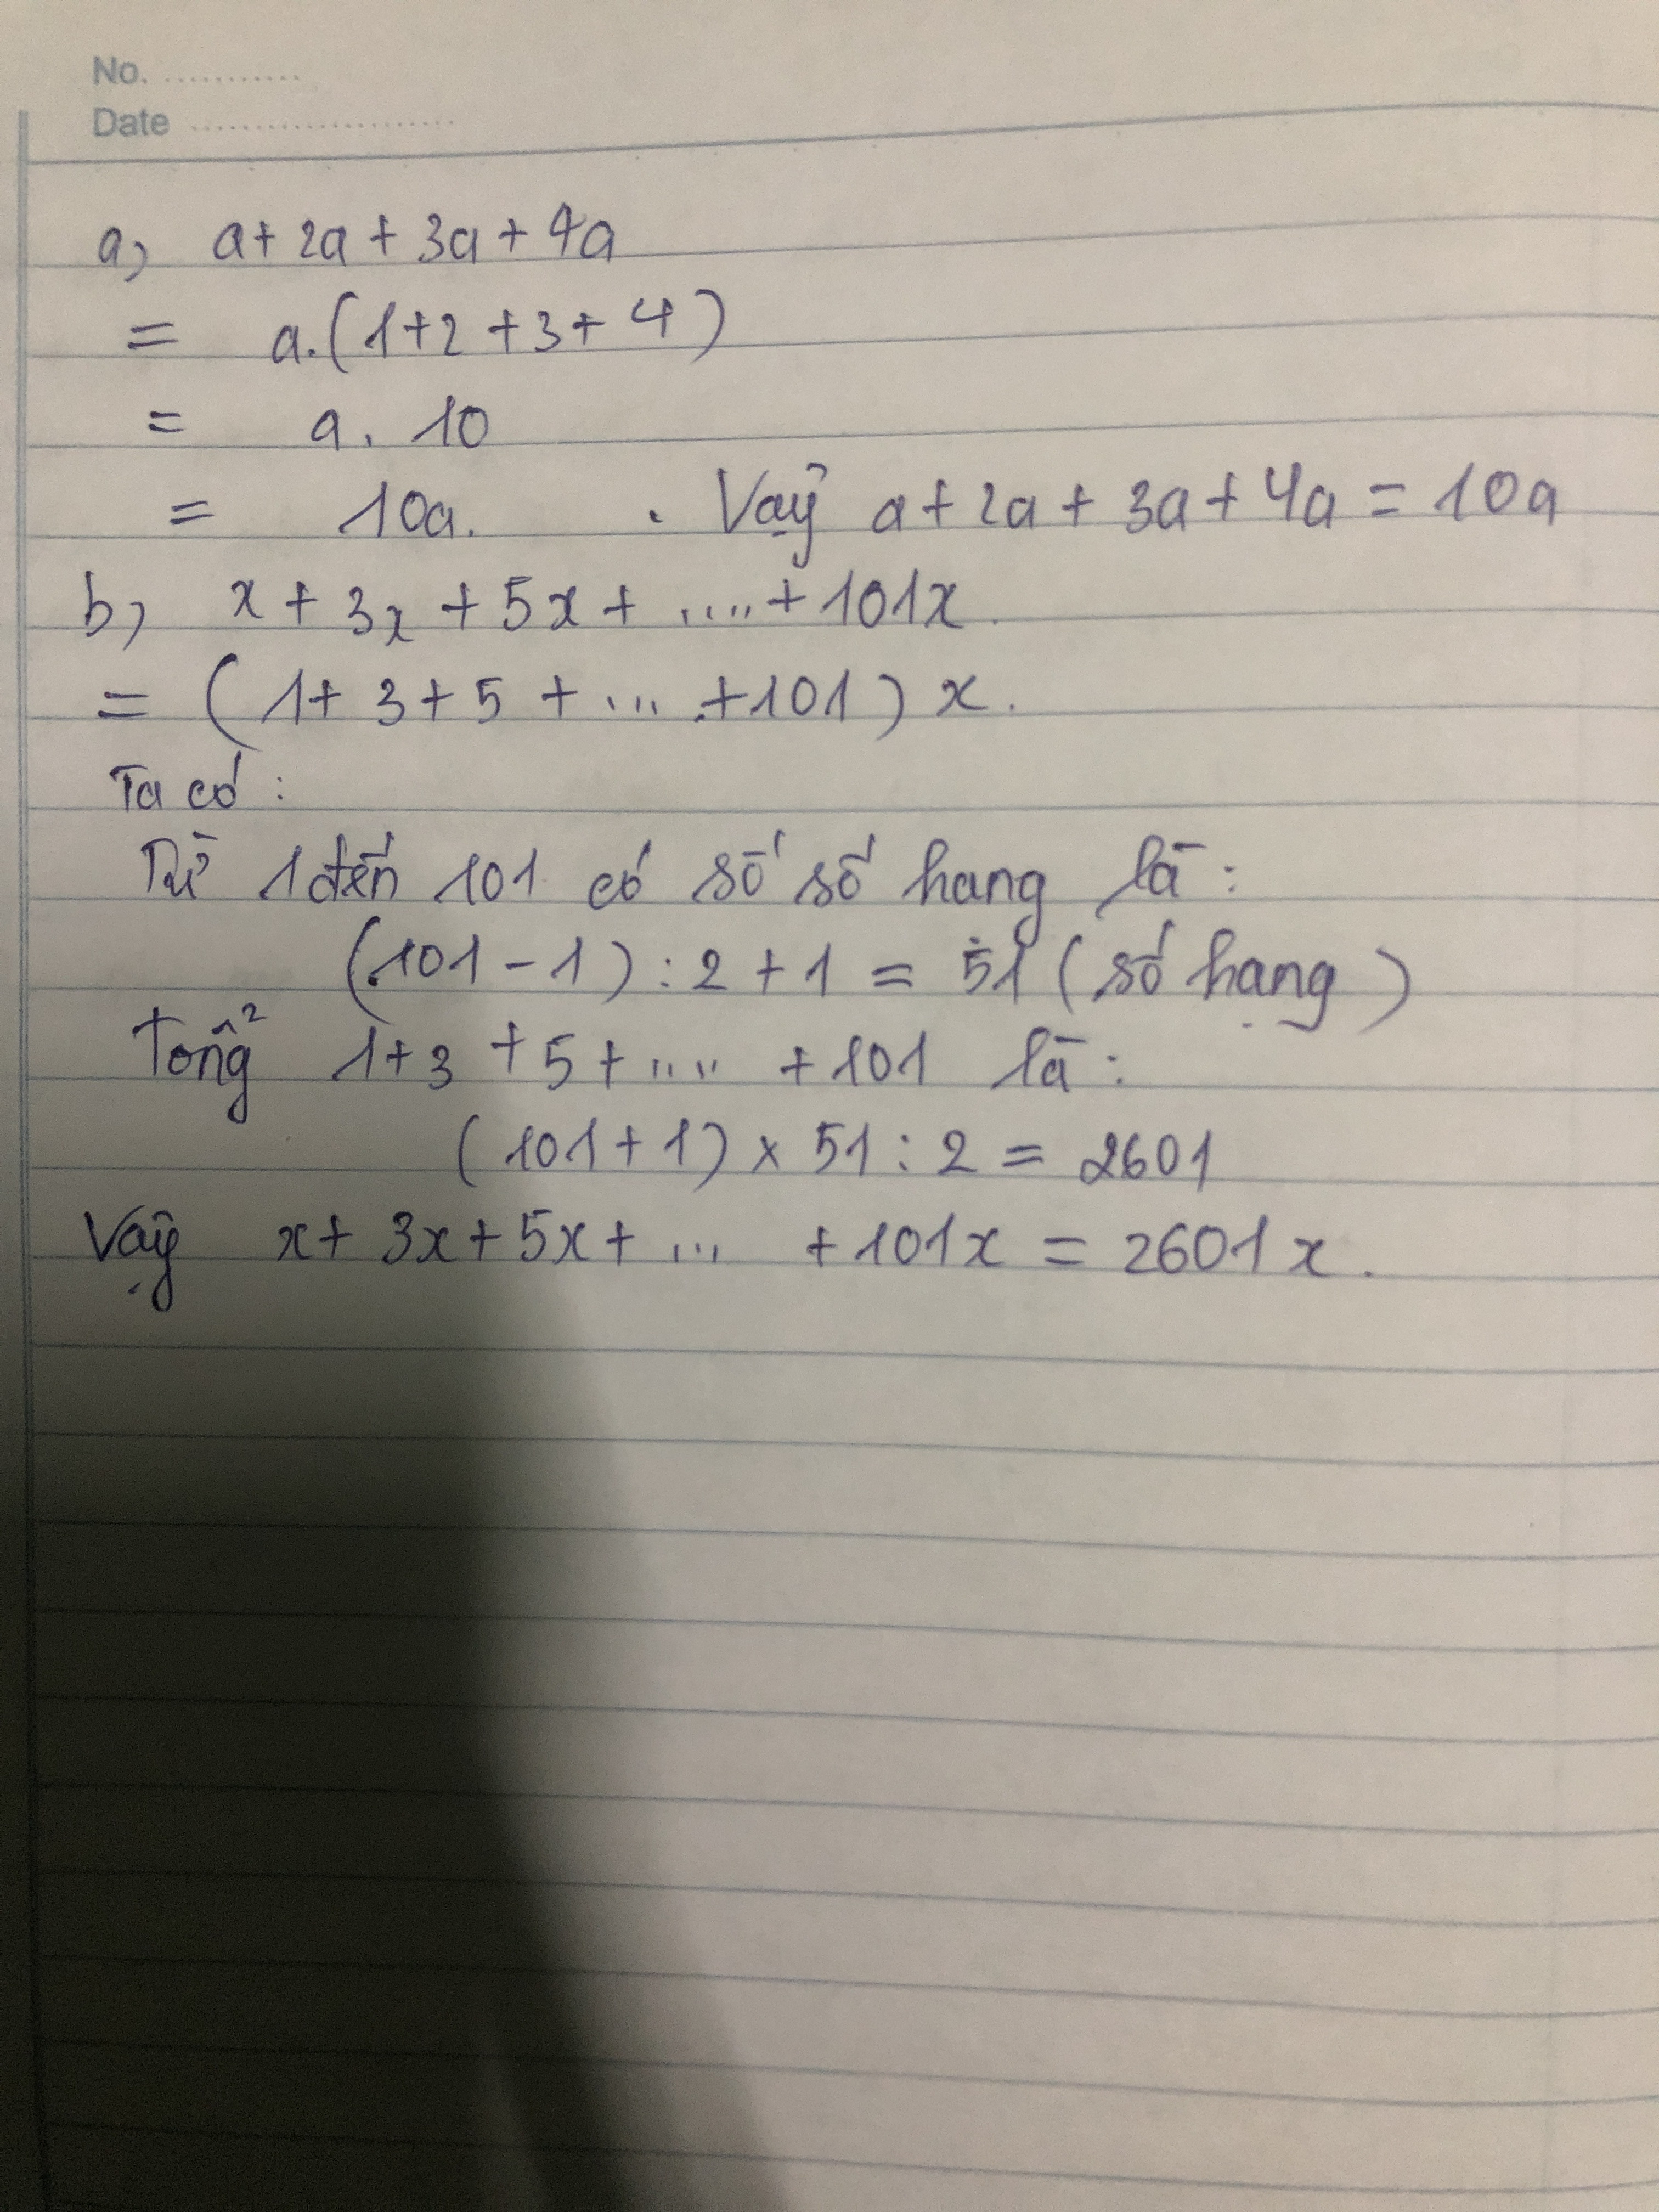 No. ............
Date .......................
a, a + 2a + 3a + 4a
= a.(1+2+3+4)
= a. 10
= 10a. . Vậy a + 2a + 3a + 4a = 10a
b, x + 3x + 5x + ..... + 101x.
= (1 + 3 + 5 + ... + 101) x.
Ta có :
Từ 1 đến 101 có số số hang là :
(101 - 1) : 2 + 1 = 51 (số hạng)
Tổng 1 + 3 + 5 + .... + 101 là :
(101 + 1) x 51 : 2 = 2601
Vậy x + 3x + 5x + ... + 101x = 2601x.